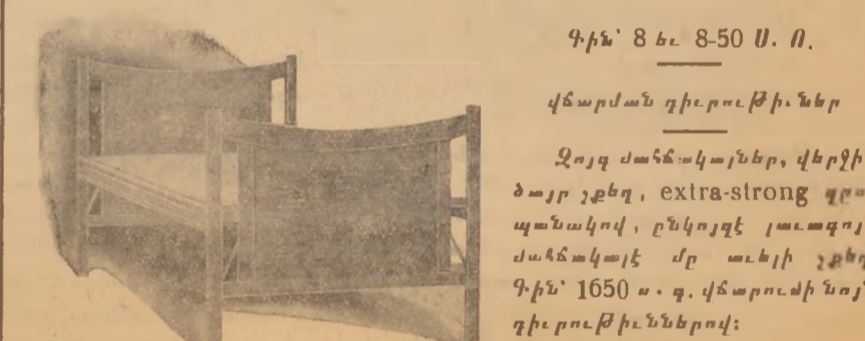 Գին՝ 8 եւ 8-50 Ս. Ո.
վճարման դիւրութի. ներ
Զոյգ մահճակալներ, վերջի
ծայր շքեղ, extra-strong
պանակով, ընկոյզէ լաւագոյ
մահճակալէ մը աւելի շքեղ
Գին՝ 1650 ս. դ. վճարումի նոյն
դիւրութիւններով: